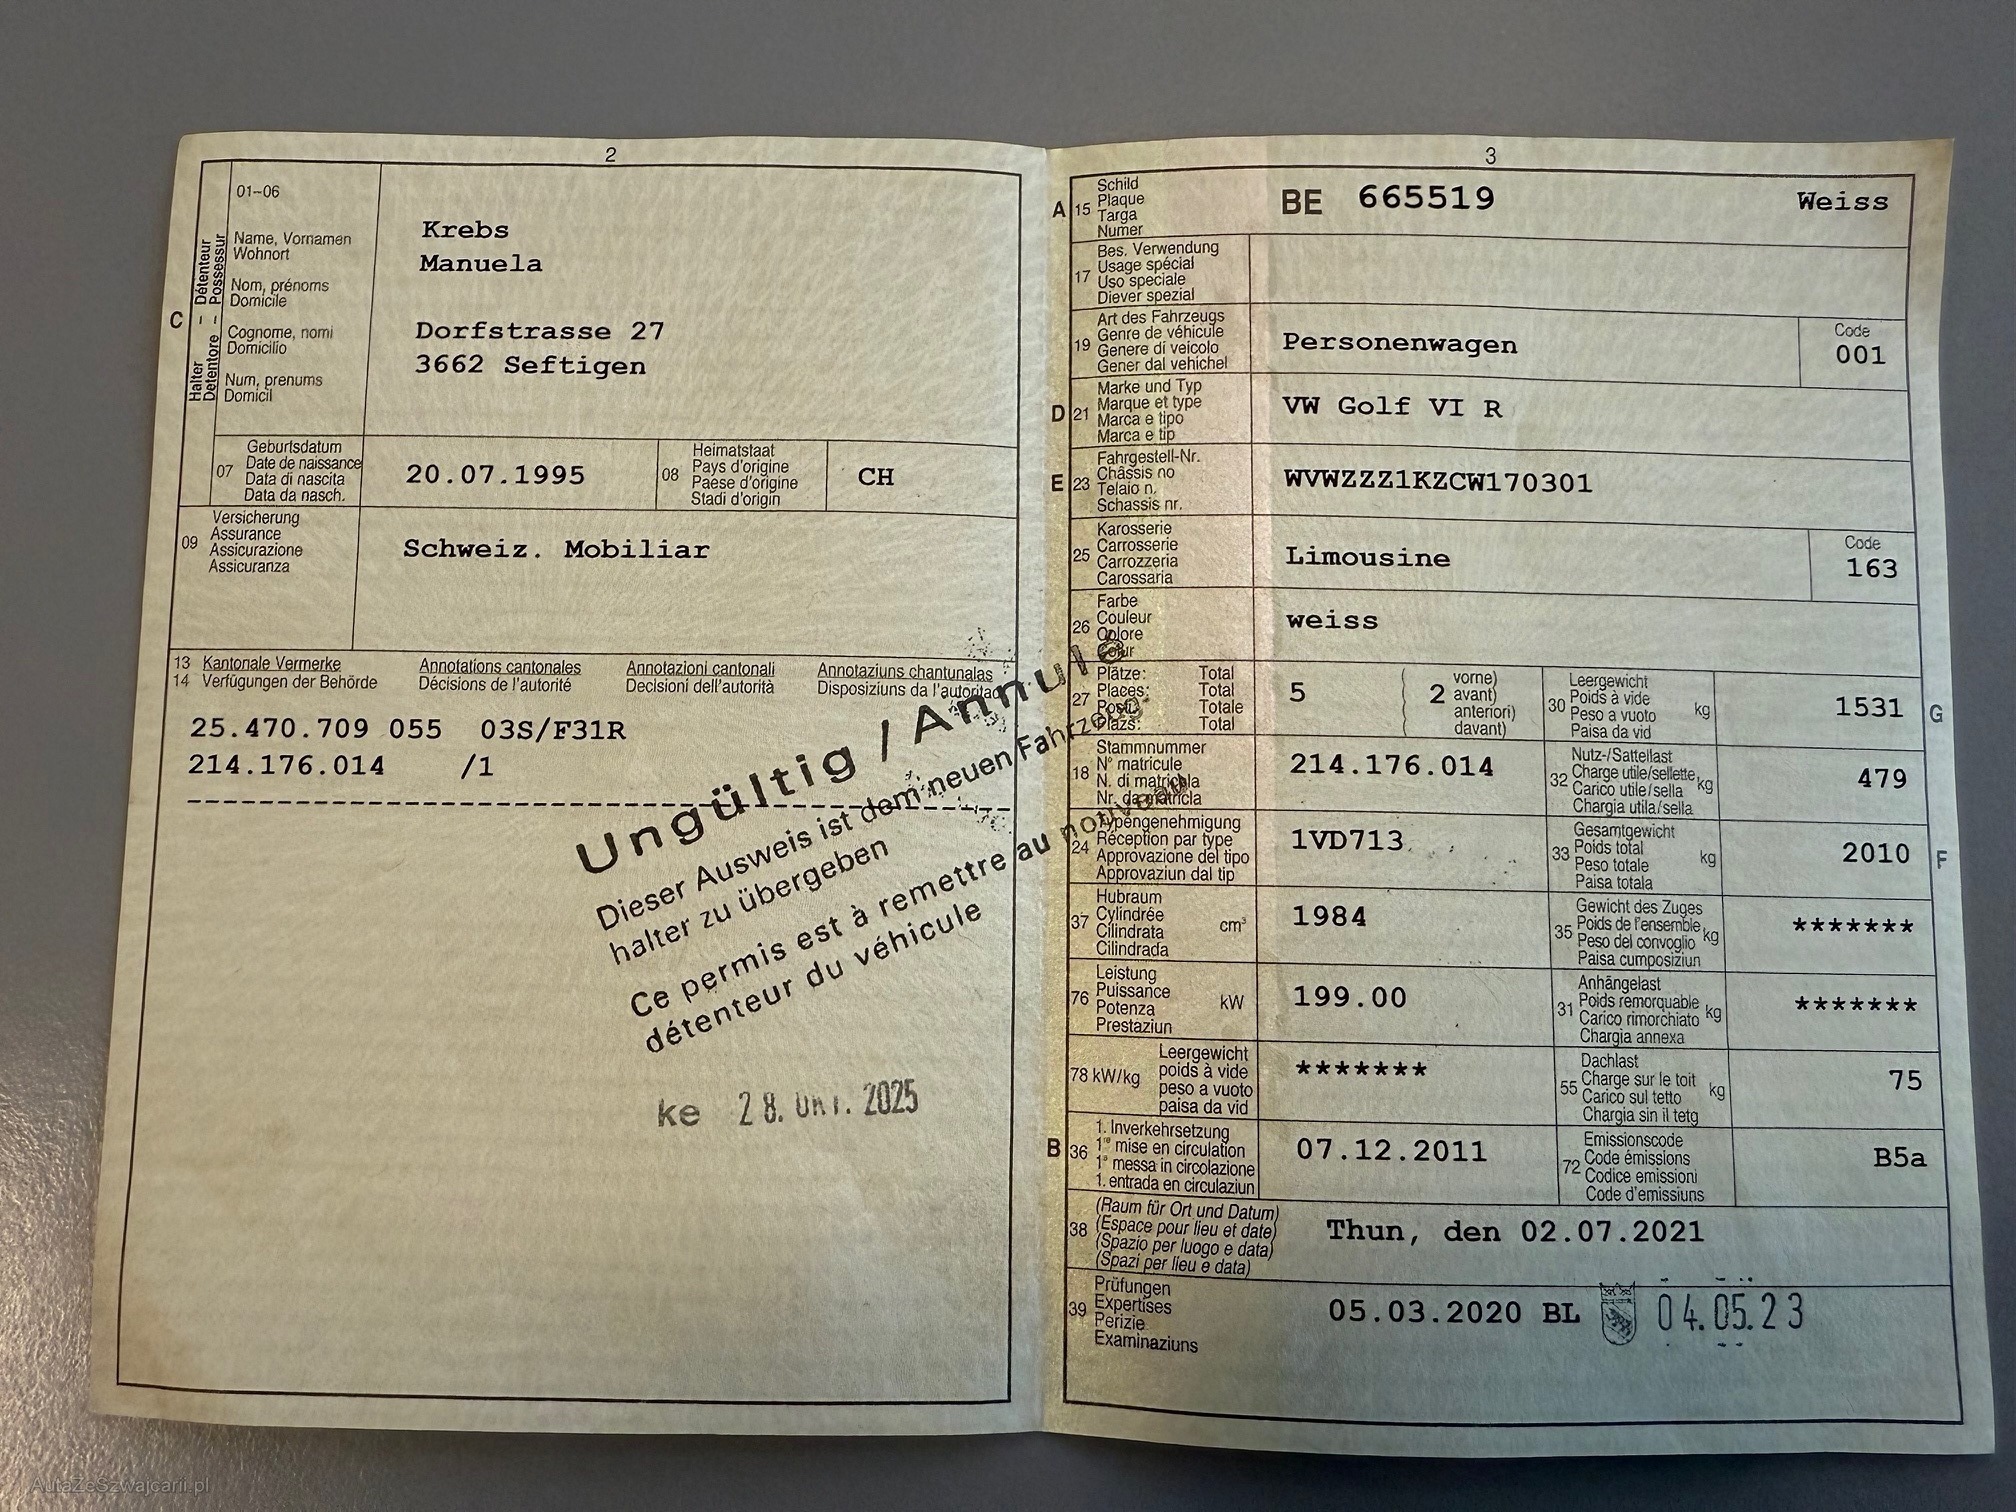 2
01–06
Name, Vornamen
Wohnort
Nom, prénoms
Domicile
Cognome, nomi
Domicilio
Num, prenums
Domicil
C
Halter – Détenteur
Detentore – Possessur
Krebs
Manuela
Dorfstrasse 27
3662 Seftigen
07
Geburtsdatum
Date de naissance
Data di nascita
Data da nasch.
20.07.1995
08
Heimatstaat
Pays d'origine
Paese d'origine
Stadi d'origin
CH
09
Versicherung
Assurance
Assicurazione
Assicuranza
Schweiz. Mobiliar
13 Kantonale Vermerke Annotations cantonales Annotazioni cantonali Annotaziuns chantunalas
14 Verfügungen der Behörde Décisions de l'autorité Decisioni dell'autorità Disposiziuns da l'autoritad
25.470.709 055 03S/F31R
214.176.014 /1
Ungültig / Annulé
Dieser Ausweis ist dem neuen Fahrzeug-
halter zu übergeben
Ce permis est à remettre au nouveau
détenteur du véhicule
ke 28. OKT. 2025
3
A 15
Schild
Plaque
Targa
Numer
BE 665519 Weiss
17
Bes. Verwendung
Usage spécial
Uso speciale
Diever spezial
19
Art des Fahrzeugs
Genre de véhicule
Genere di veicolo
Gener dal vehichel
Personenwagen
Code
001
D 21
Marke und Typ
Marque et type
Marca e tipo
Marca e tip
VW Golf VI R
E 23
Fahrgestell-Nr.
Châssis no
Telaio n.
Schassis nr.
WVWZZZ1KZCW170301
25
Karosserie
Carrosserie
Carrozzeria
Carossaria
Limousine
Code
163
26
Farbe
Couleur
Colore
Colur
weiss
27
Plätze: Total
Places: Total
Posti: Totale
Plazs: Total
5
( 2 vorne)
( avant)
( anteriori)
( davant)
30
Leergewicht
Poids à vide
Peso a vuoto
Paisa da vid
kg
1531
G
18
Stammnummer
N° matricule
N. di matricola
Nr. da matricla
214.176.014
32
Nutz-/Sattellast
Charge utile/sellette
Carico utile/sella
Chargia utila/sella
kg
479
24
Typengenehmigung
Réception par type
Approvazione del tipo
Approvaziun dal tip
1VD713
33
Gesamtgewicht
Poids total
Peso totale
Paisa totala
kg
2010
F
37
Hubraum
Cylindrée
Cilindrata
Cilindrada
cm³
1984
35
Gewicht des Zuges
Poids de l'ensemble
Peso del convoglio
Paisa cumposiziun
kg
*******
76
Leistung
Puissance
Potenza
Prestaziun
kW
199.00
31
Anhängelast
Poids remorquable
Carico rimorchiato
Chargia annexa
kg
*******
78 kW/kg
Leergewicht
poids à vide
peso a vuoto
paisa da vid
*******
55
Dachlast
Charge sur le toit
Carico sul tetto
Chargia sin il tetg
kg
75
B 36
1. Inverkehrsetzung
1re mise en circulation
1a messa in circolazione
1. entrada en circulaziun
07.12.2011
72
Emissionscode
Code émissions
Codice emissioni
Code d'emissiuns
B5a
38
(Raum für Ort und Datum)
(Espace pour lieu et date)
(Spazio per luogo e data)
(Spazi per lieu e data)
Thun, den 02.07.2021
39
Prüfungen
Expertises
Perizie
Examinaziuns
05.03.2020 BL 04.05.23
AutaZeSzwajcarii.pl